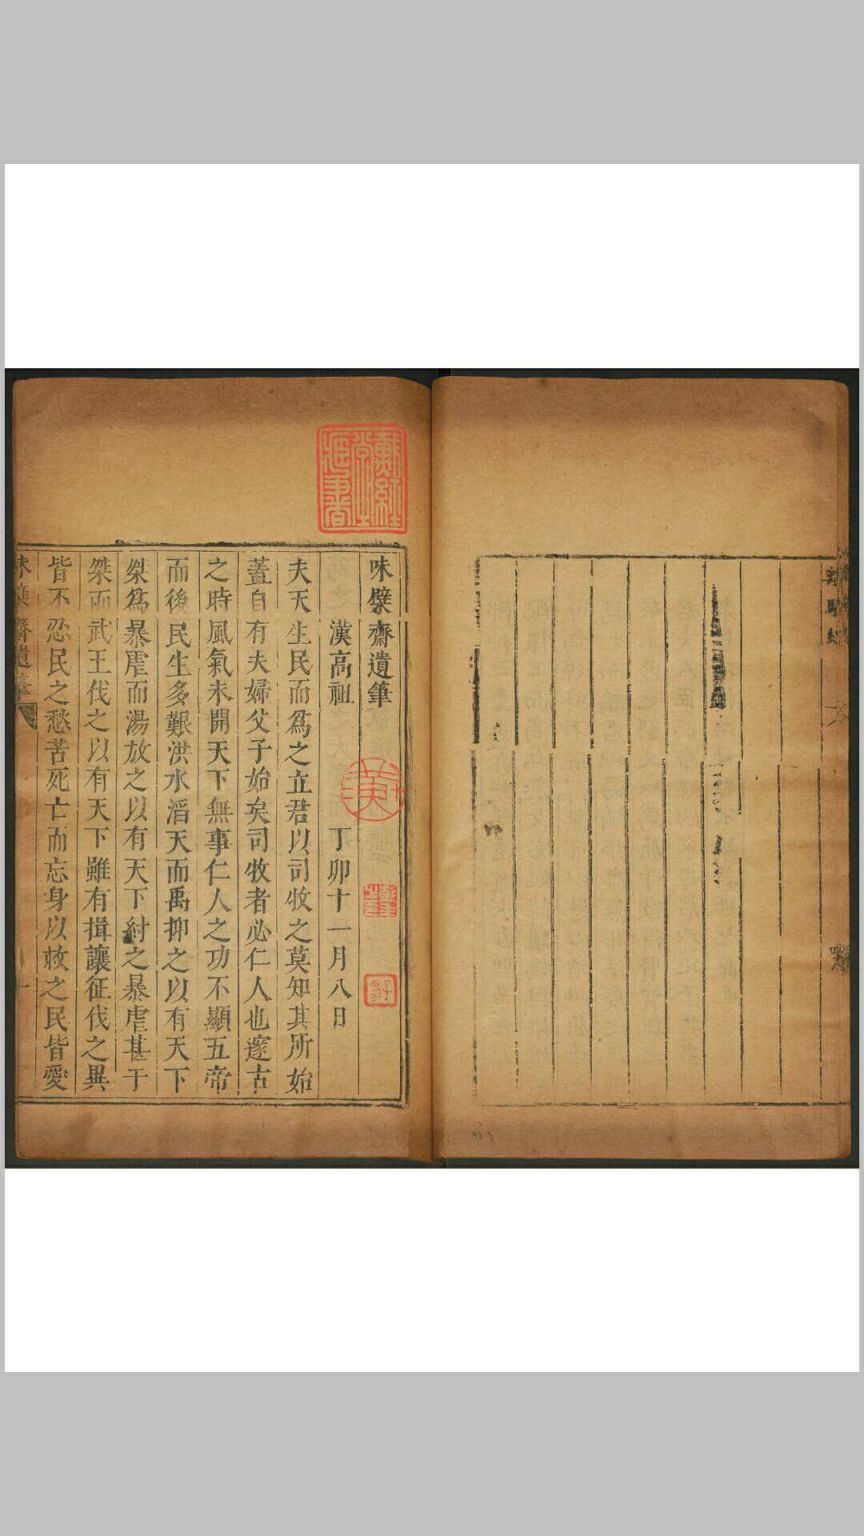 味檗齋遺筆
漢高祖 丁卯十一月八日
夫天生民而爲之立君以司牧之莫知其所始
蓋自有夫婦父子始矣司牧者必仁人也邃古
之時風氣未開天下無事仁人之功不顯五帝
而後民生多艱洪水滔天而禹抑之以有天下
桀爲暴虐而湯放之以有天下紂之暴虐甚于
桀而武王伐之以有天下雖有揖讓征伐之異
皆不忍民之愁苦死亡而忘身以救之民皆愛
味檗齋遺筆
一
黃